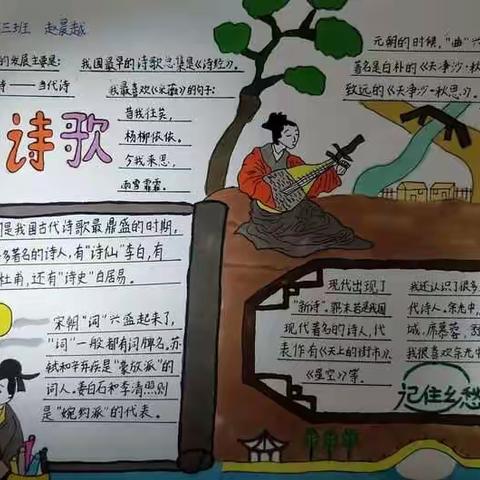 三班 赵晨越
的发展主要是:
诗——当代诗
我国最早的诗歌总集是《诗经》。
我最喜欢《采薇》的句子:
昔我往矣,
杨柳依依。
今我来思,
雨雪霏霏。
诗歌
元朝的时候,“曲”兴
著名是白朴的《天净沙·秋
致远的《天净沙·秋思》。
是我国古代诗歌最鼎盛的时期,
多著名的诗人,有“诗仙”李白,有
杜甫,还有“诗史”白居易。
宋朝“词”兴盛起来了,
“词”一般都有词牌名,苏
轼和辛弃疾是“豪放派”的
词人。姜白石和李清照则
是“婉约派”的代表。
现代出现了
“新诗”。郭沫若是我国
现代著名的诗人,代
表作有《天上的街市》、
《星空》等。
我还认识了很多
代诗人。余光中、
城、席慕蓉、
我很喜欢余光中
记住乡愁